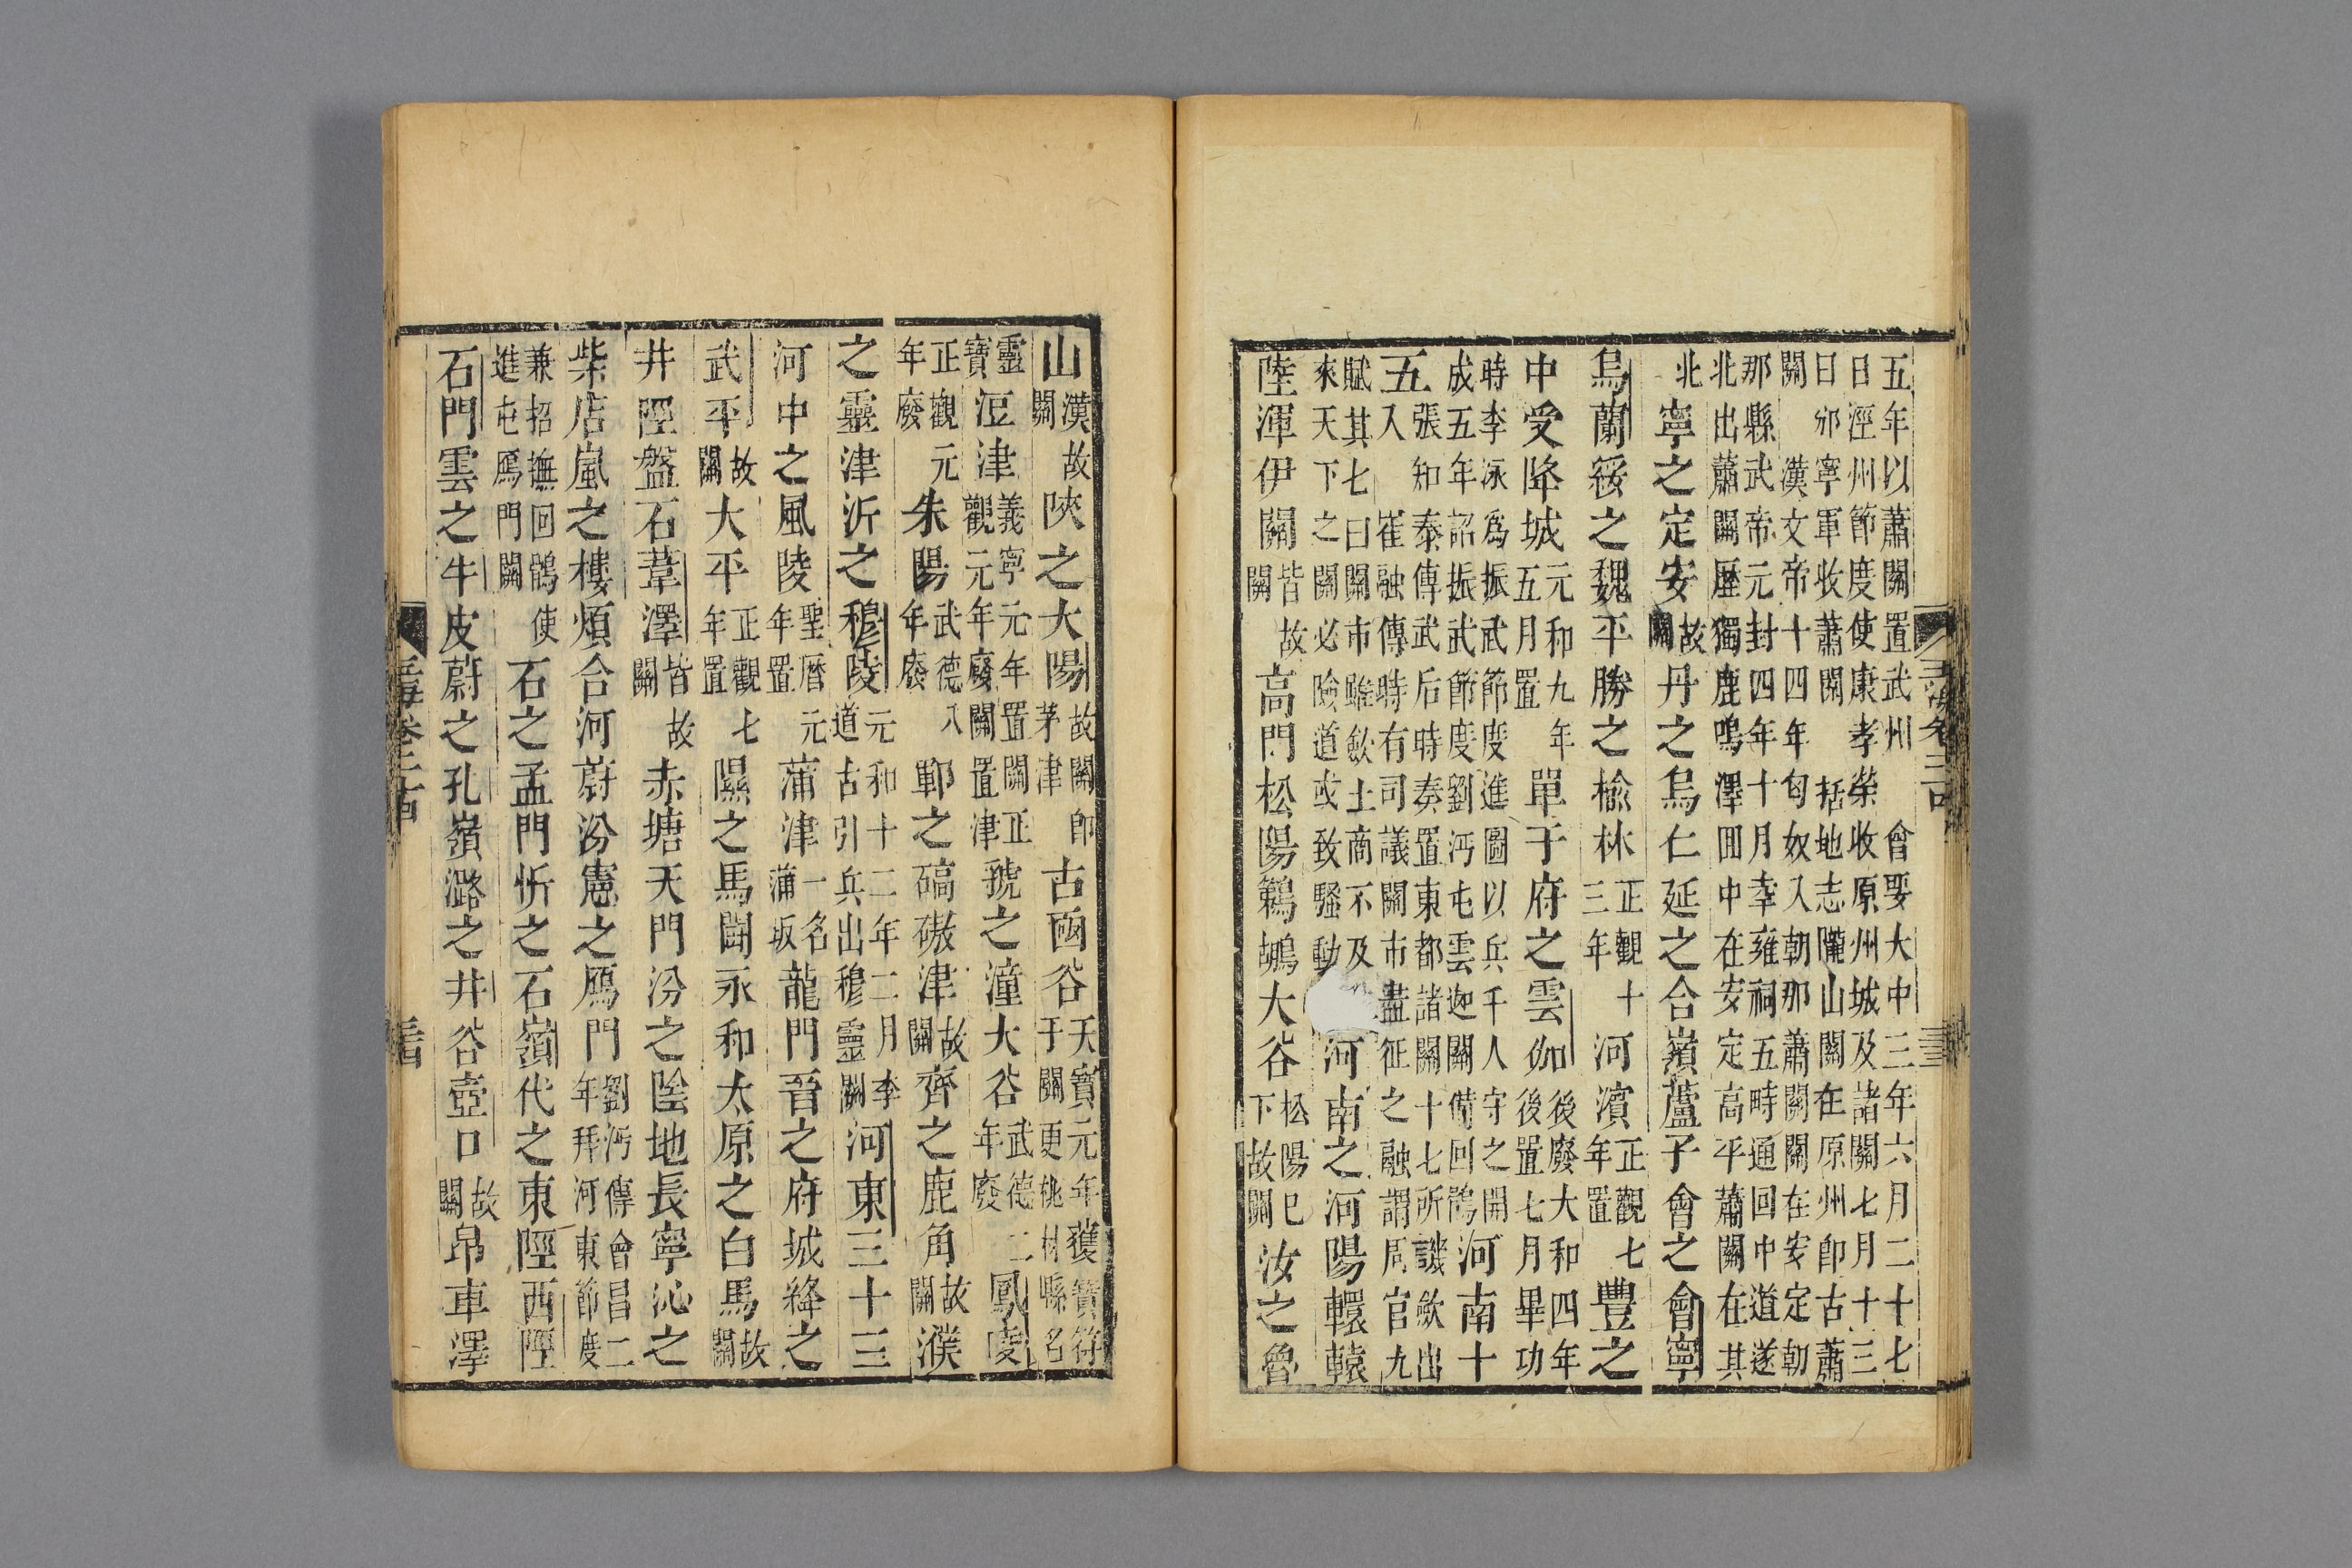 五年以蕭關置武州　會要大中三年六月二十七
日涇州節度使康孝榮收原州城及諸關七月十三
日邠寧軍收蕭關　括地志隴山關在原州即古蕭
關　漢文帝十四年匈奴入朝那蕭關關在安定朝
那縣武帝元封四年十月幸雍祠五畤通回中道遂
北出蕭關歷獨鹿鳴澤囬中在安定高平蕭關在其
北寧之定安故關丹之烏仁延之合嶺蘆子會之會寧
烏蘭綏之魏平勝之楡林正觀十三年河濱正觀七年置豐之
中受降城元和九年五月置單于府之雲伽後廢大和四年後置七月畢功
時李泳爲振武節度進圖以兵千人守之開成五年詔振武節度劉沔屯雲迦關備回鶻河南十
五張知泰傳武后時奏置東都諸關十七所譏歛出入　崔融傳時有司議關市盡征之融謂周官九
賦其七曰關市雖歛土商不及來天下之關必險道或致騷動河南之河陽轘轅
陸渾伊關皆故關高門松陽鶘大谷松陽巳下故關汝之魯
山漢故關陜之大陽故關即茅津古函谷天寶元年獲寶符于關更桃林縣名
靈寶浢津義寧元年置關正觀元年廢關置津虢之潼大谷武德二年廢鳳陵
正觀元年廢朱陽武德八年廢鄆之碻磝津故關齊之鹿角故關濮
之靈津沂之穆陵元和十二年二月李道古引兵出穆靈關河東三十三
河中之風陵聖曆元年置蒲津一名蒲坂龍門晉之府城絳之
武平故關大平正觀七年置隰之馬鬪永和太原之白馬故關
井陘盤石葦澤皆故關赤塘天門汾之陰地長寧沁之
柴店嵐之樓煩合河蔚汾憲之鴈門劉沔傳會昌二年拜河東節度
兼招撫回鶻使進屯鴈門關石之孟門忻之石嶺代之東陘西陘
石門雲之牛皮蔚之孔嶺潞之井谷壺口故關昂車澤